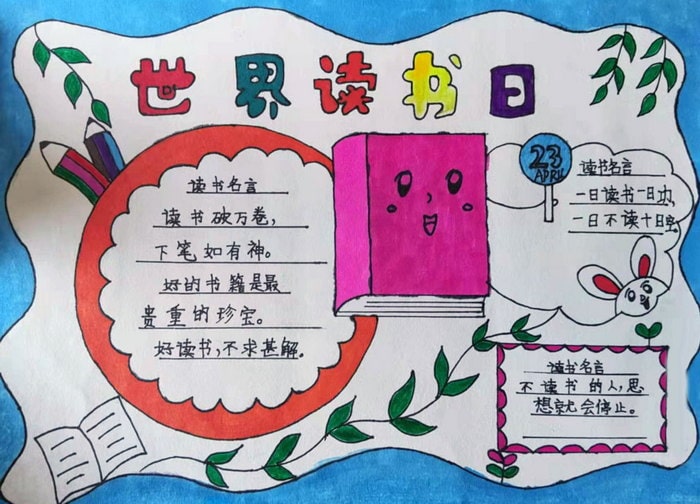 世界读书日
读书名言
读书破万卷，
下笔如有神。
好的书籍是最
贵重的珍宝。
好读书，不求甚解。
23
APRIL
读书名言
一日读书一日功，
一日不读十日空。
读书名言
不读书的人，思
想就会停止。